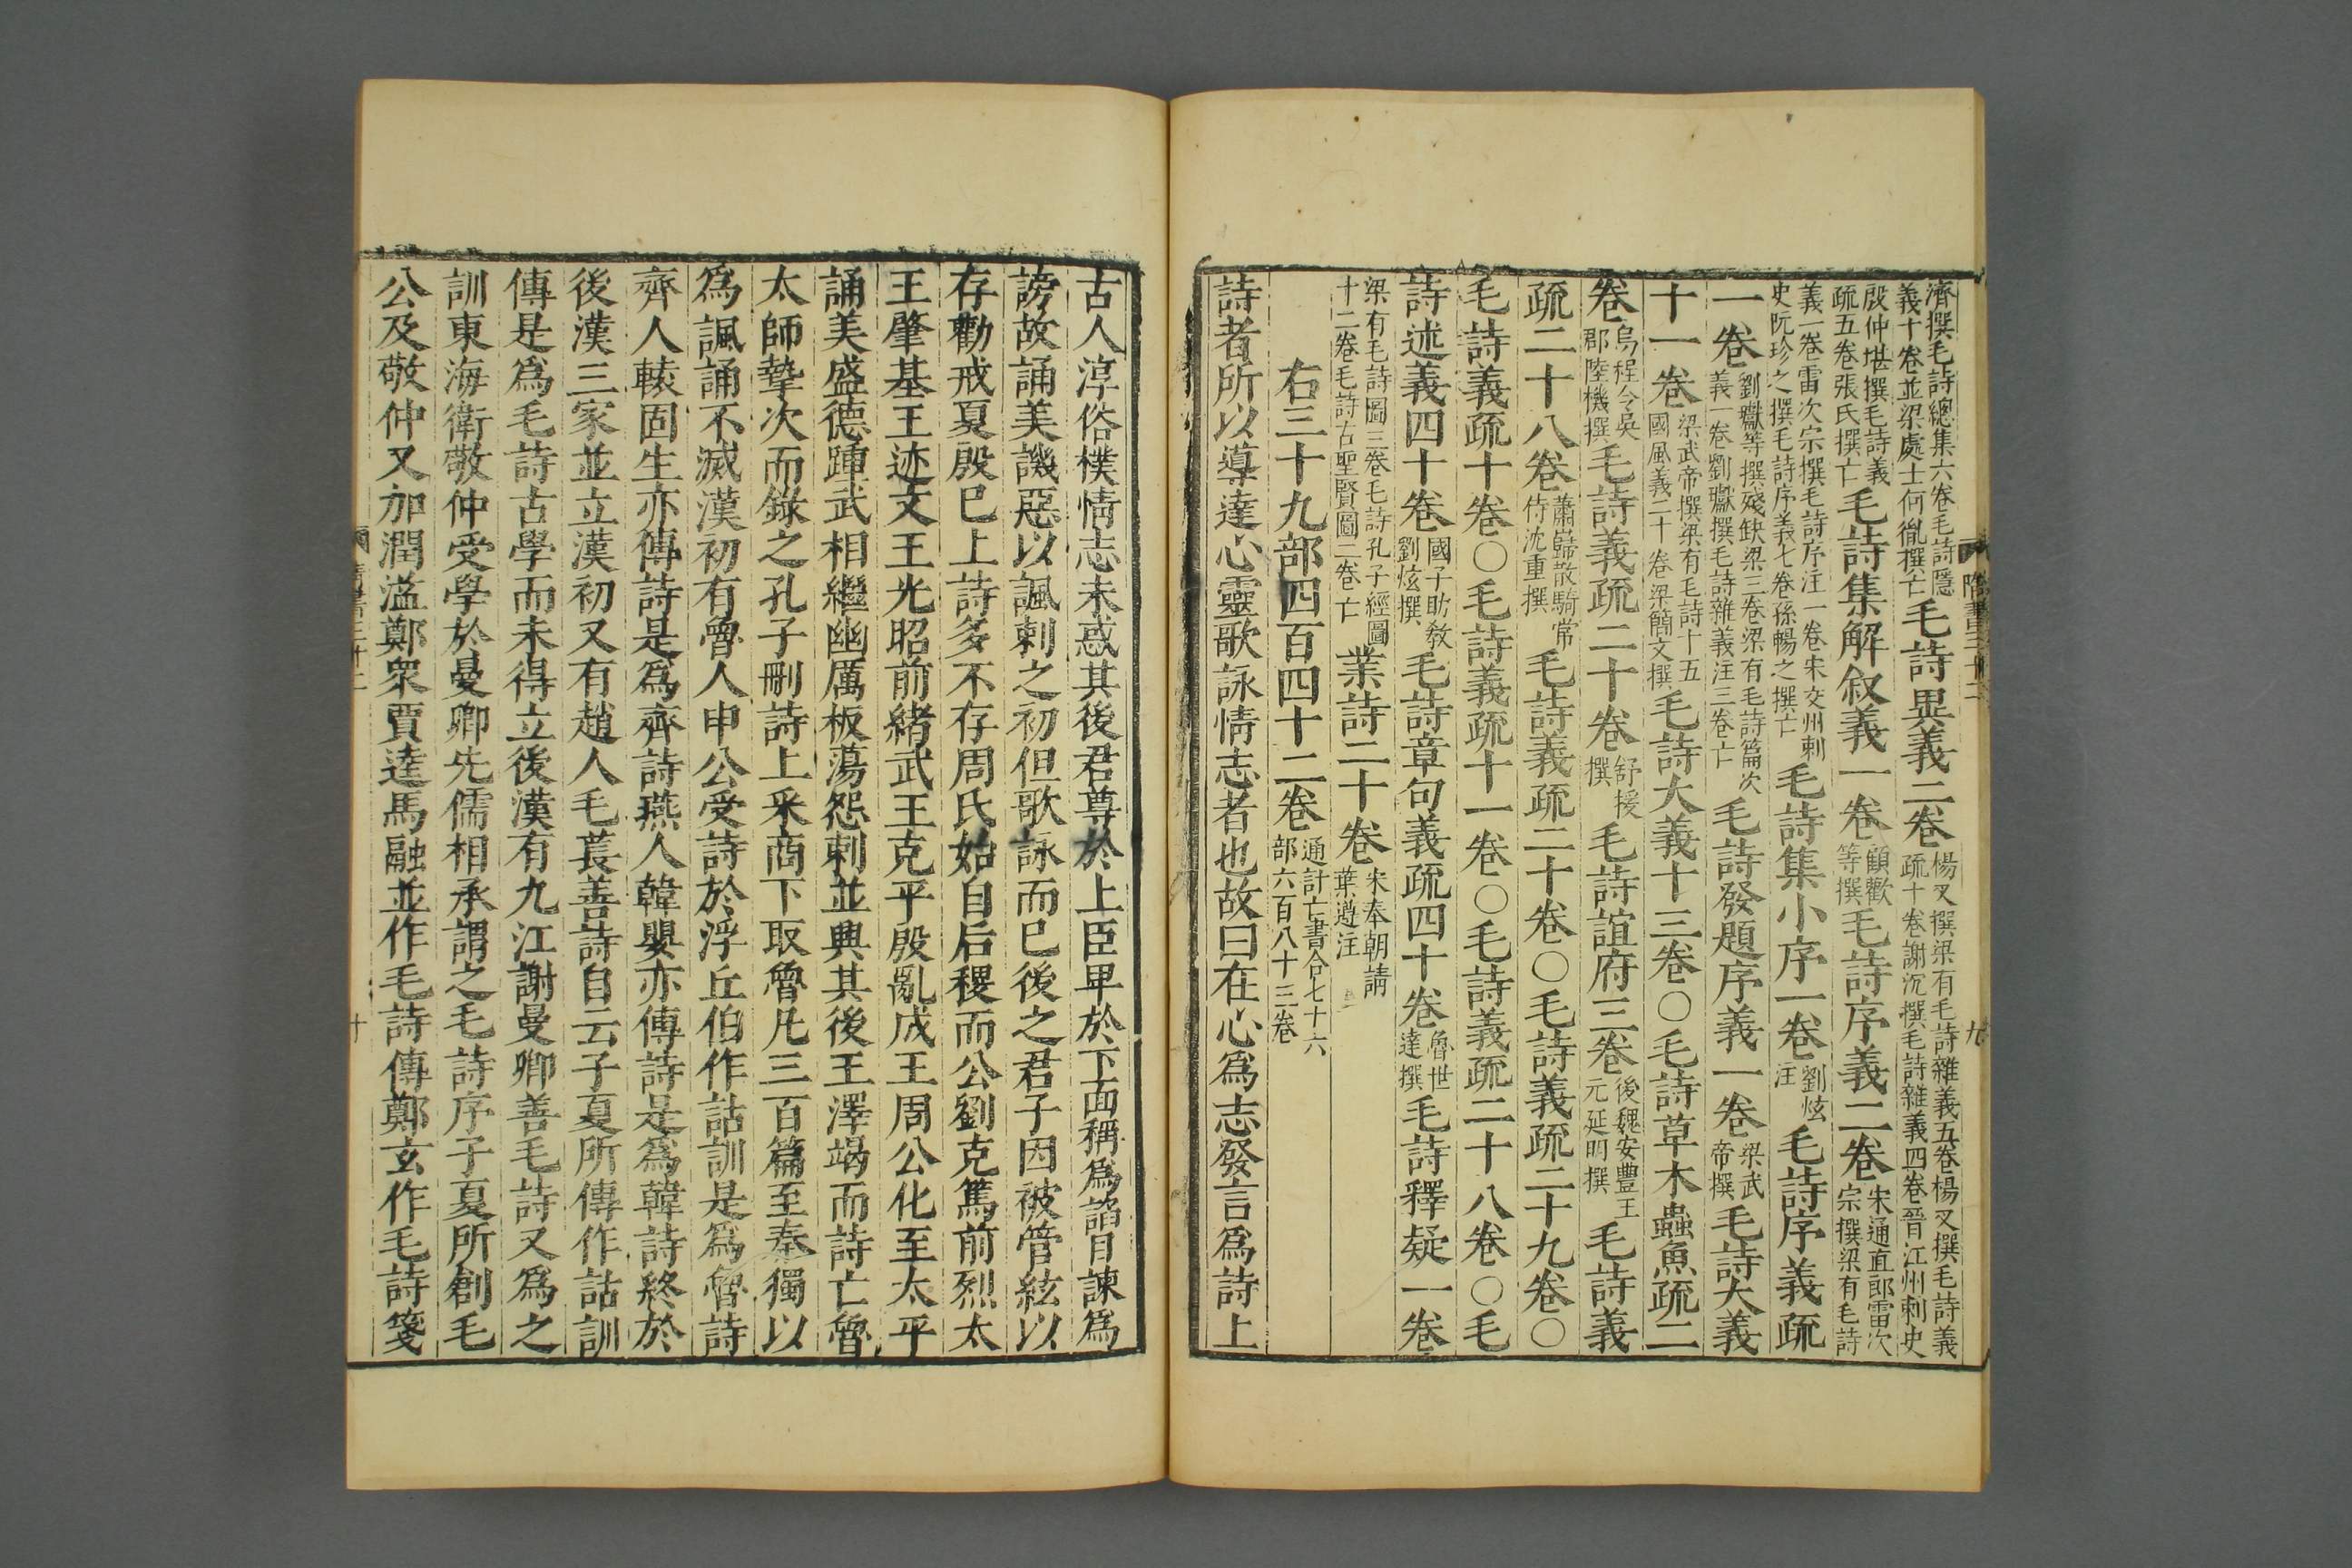 濟撰毛詩總集六卷毛詩隱義十卷並梁處士何胤撰亡毛詩異義二卷楊乂撰梁有毛詩雜義五卷楊乂撰毛詩義疏十卷謝沉撰毛詩雜義四卷晉江州刺史
殷仲堪撰毛詩義疏五卷張氏撰亡毛詩集解叙義一卷顧歡等撰毛詩序義二卷宋通直郎雷次宗撰梁有毛詩
義一卷雷次宗撰毛詩序注一卷宋交州刺史阮珍之撰毛詩序義七卷孫暢之撰亡毛詩集小序一卷劉炫注毛詩序義疏
一卷劉瓛等撰殘缺梁三卷梁有毛詩篇次義一卷劉瓛撰毛詩雜義注三卷亡毛詩發題序義一卷梁武帝撰毛詩大義
十一卷梁武帝撰梁有毛詩十五國風義二十卷梁簡文撰毛詩大義十三卷〇毛詩草木蟲魚疏二
卷烏程令吳郡陸機撰毛詩義疏二十卷舒援撰毛詩誼府三卷後魏安豐王元延明撰毛詩義
疏二十八卷蕭巋散騎常侍沈重撰毛詩義疏二十卷〇毛詩義疏二十九卷〇
毛詩義疏十卷〇毛詩義疏十一卷〇毛詩義疏二十八卷〇毛
詩述義四十卷國子助教劉炫撰毛詩章句義疏四十卷魯世達撰毛詩釋疑一卷
梁有毛詩圖三卷毛詩孔子經圖十二卷毛詩古聖賢圖二卷亡業詩二十卷宋奉朝請業遵注
右三十九部四百四十二卷通計亡書合七十六部六百八十三卷
詩者所以導達心靈歌詠情志者也故曰在心爲志發言爲詩上
古人淳俗樸情志未惑其後君尊於上臣卑於下面稱爲諂目諫爲
謗故誦美譏惡以諷刺之初但歌詠而已後之君子因被管絃以
存勸戒夏殷已上詩多不存周氏始自后稷而公劉克篤前烈太
王肇基王迹文王光昭前緒武王克平殷亂成王周公化至太平
誦美盛德踵武相繼幽厲板蕩怨刺並興其後王澤竭而詩亡魯
太師摯次而錄之孔子刪詩上采商下取魯凡三百篇至秦獨以
爲諷誦不滅漢初有魯人申公受詩於浮丘伯作詁訓是爲魯詩
齊人轅固生亦傳詩是爲齊詩燕人韓嬰亦傳詩是爲韓詩終於
後漢三家並立漢初又有趙人毛萇善詩自云子夏所傳作詁訓
傳是爲毛詩古學而未得立後漢有九江謝曼卿善毛詩又爲之
訓東海衛敬仲受學於曼卿先儒相承謂之毛詩序子夏所創毛
公及敬仲又加潤溢鄭衆賈逵馬融並作毛詩傳鄭玄作毛詩箋